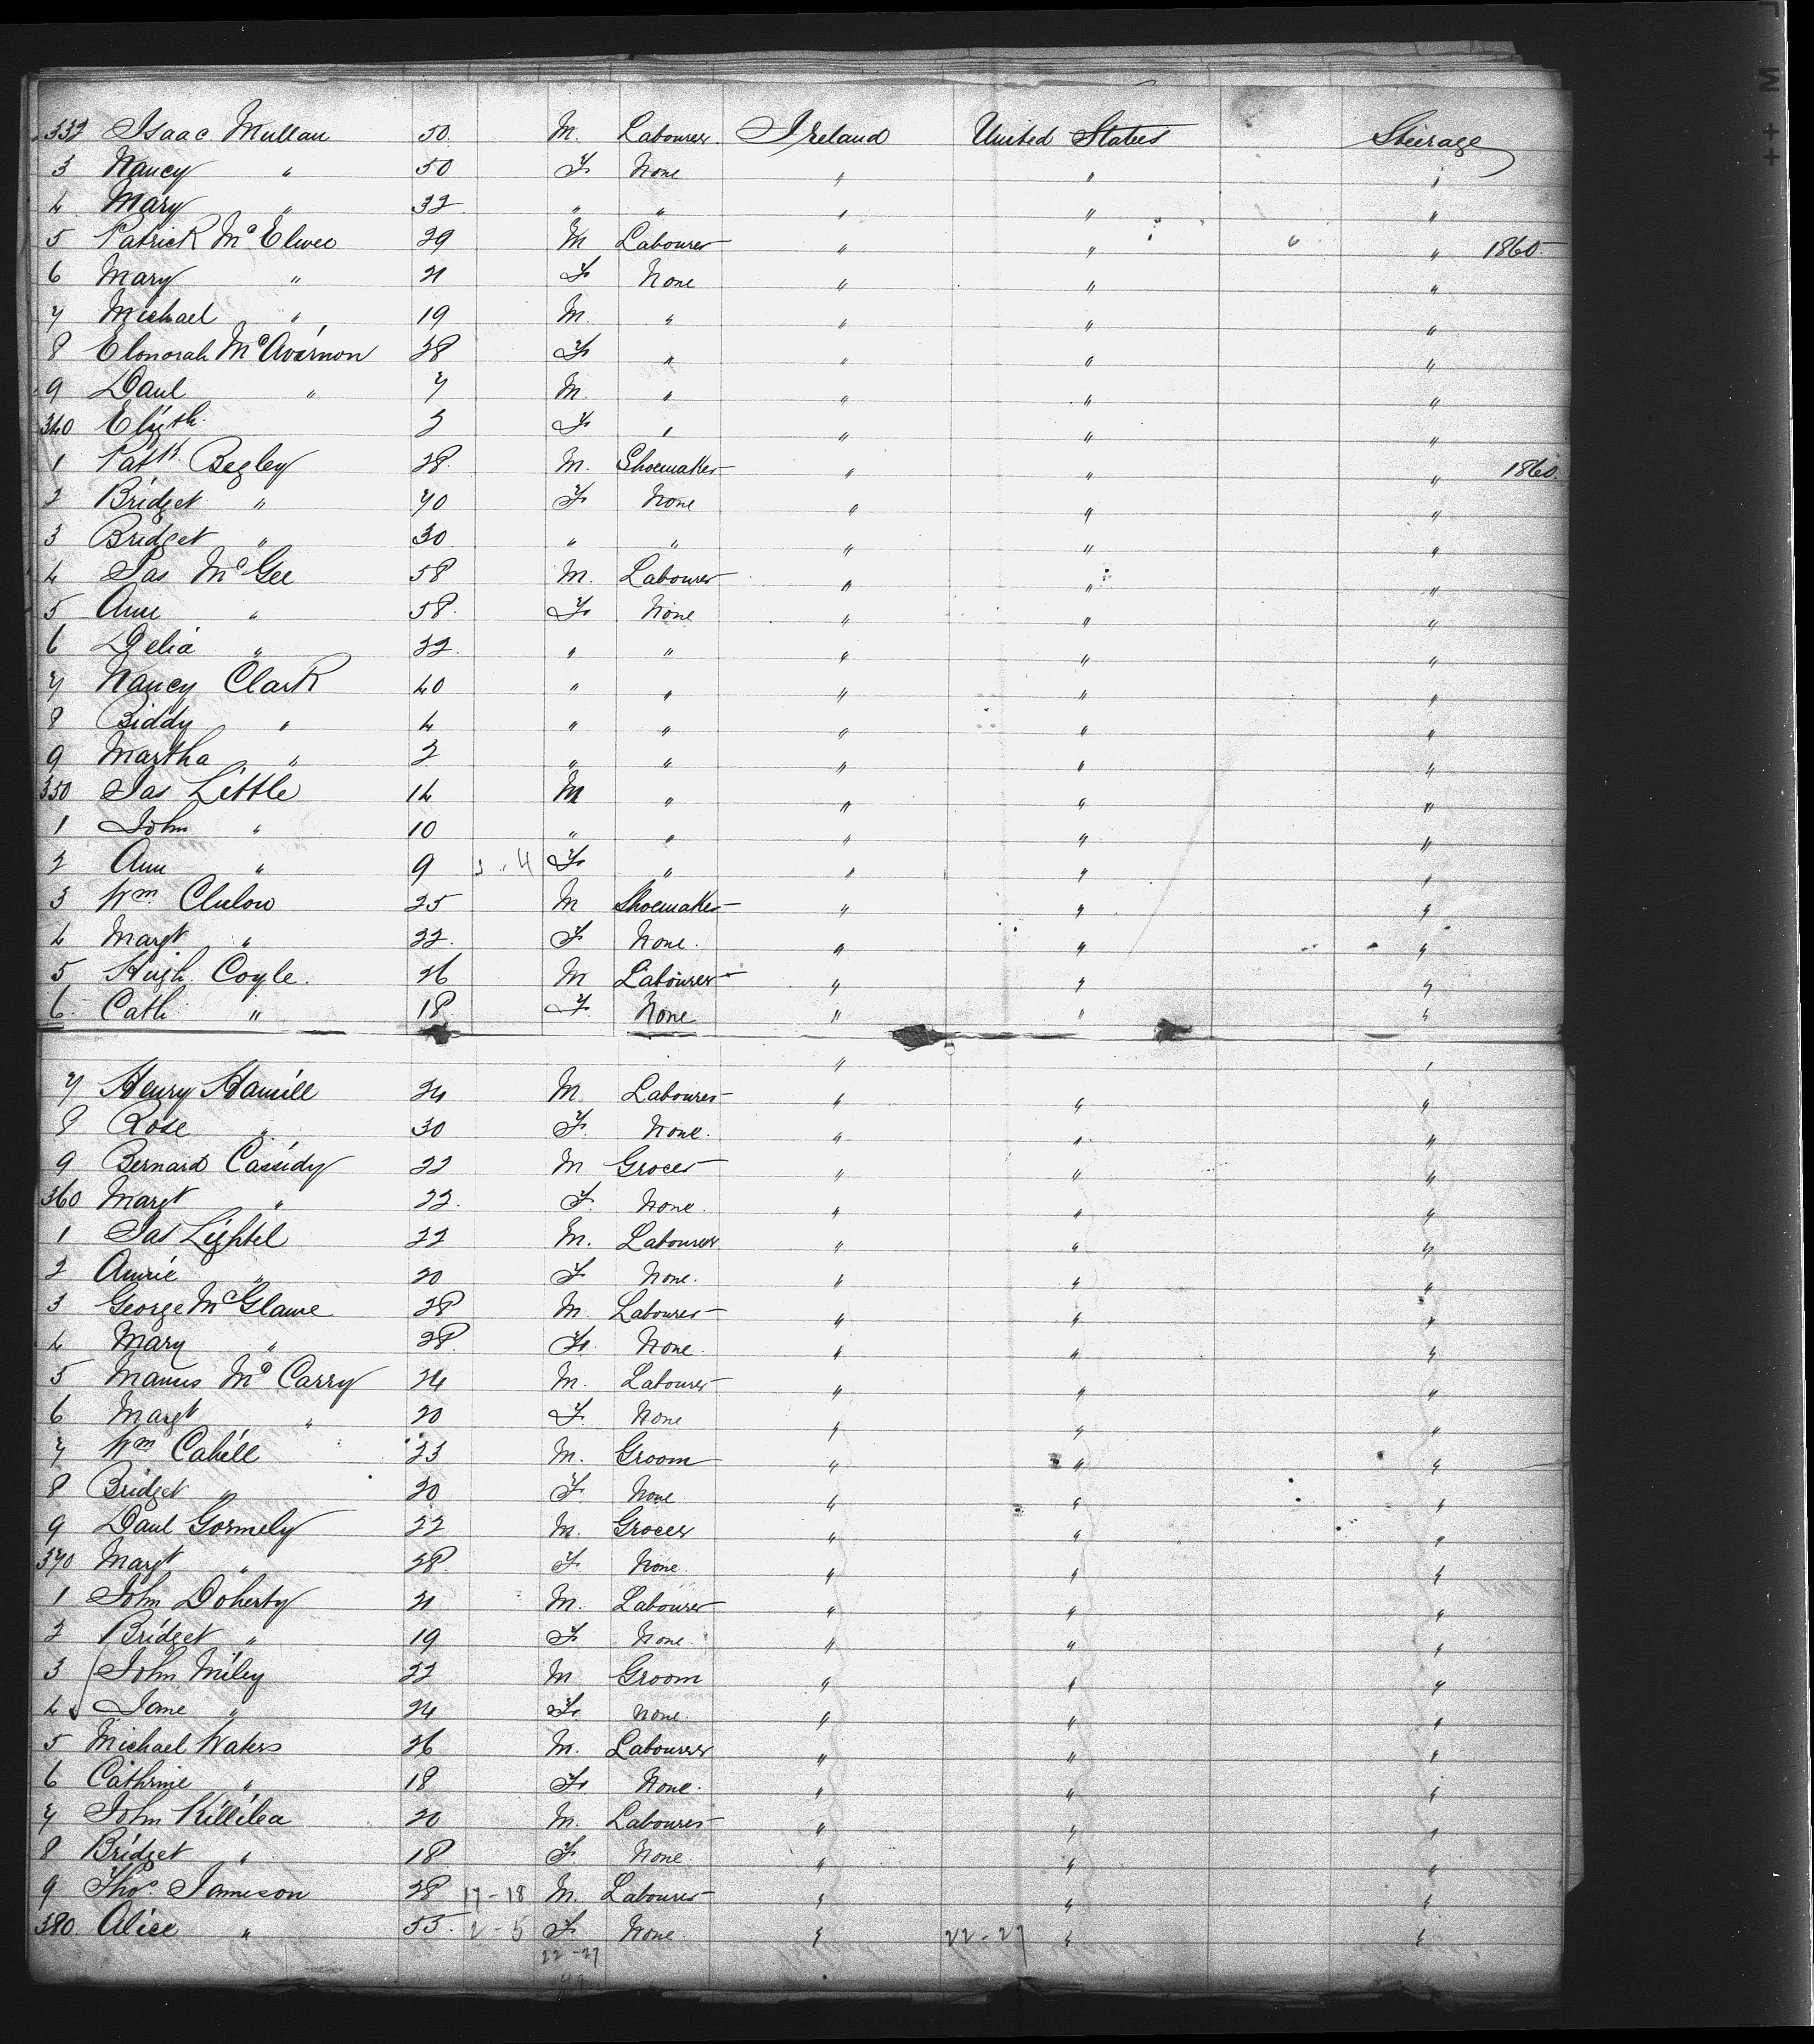 332 Isaac Mullan 50 M. Labourer Ireland United States Steerage
3 Nancy " 50 F None " " "
4 Mary " 32 " " " " "
5 Patrick McElwee 29 M Labourer " " " 1860
6 Mary " 21 F None " " "
7 Michael " 19 M. " " " "
8 Elonorah McAvarnon 28 F " " " "
9 Danl " 7 M. " " " "
340 Elizth. 3 F " " " "
1 Patk. Begley 28 M. Shoemaker " " " 1860.
2 Bridget " 70 F None " " "
3 Bridget " 30 " " " " "
4 Jas McGee 58 M. Labourer " " "
5 Ann " 58. F None " " "
6 Delia " 22. " " " " "
7 Nancy Clark 40 " " " " "
8 Biddy " 4 " " " " "
9 Martha " 2 " " " " "
350 Jas Little 14 M " " " "
1 John " 10 " " " " "
2 Ann " 9 F " " " "
3 Wm. Clulow 25 M Shoemaker " " "
4 Margt " 22. F None. " " "
5 Hugh Coyle. 26 M Labourer " " "
6 Cath " 18. F. None " " "
" "
7 Henry Hamill 24 M. Labourer " " "
8 Rose " 30 F. None. " " "
9 Bernard Cassidy 22 M Grocer " " "
360 Margt " 22. F. None. " " "
1 Jas 22 M. Labourer " " "
2 Annie " 20 F None. " " "
3 George 28 M. Labourer " " "
4 Mary " 28. F. None. " " "
5 Manus McCarry 24 M. Labourer " " "
6 Margt " 20 F. None " " "
7 Wm Cahill 23 M. Groom " " "
8 Bridget " 20 F. None " " "
9 Danl Gormely 22 M. Grocer " " "
370 Margt " 28. F. None. " " "
1 John Doherty 21 M. Labourer " " "
2 Bridget " 19 F None " " "
3 John Miley 22 M Groom " " "
4 Jane " 24 F. None. " " "
5 Michael Waters 26 M. Labourer " " "
6 Cathrine " 18 F. None. " " "
7 John Killilea 20 M. Labourer " " "
8 Bridget " 18 F. None. " " "
9 Thos. Jameson 28 17-18 M. Labourer " " "
380 Alice " 55. 2-5 F None. " 22-27 " "
22-27